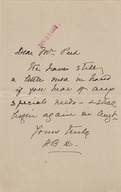 Dear Mr Peet
We have still
a little more in hand
if you hear of any
special needs - & shall
begin again in Augt
Yours truly
HB